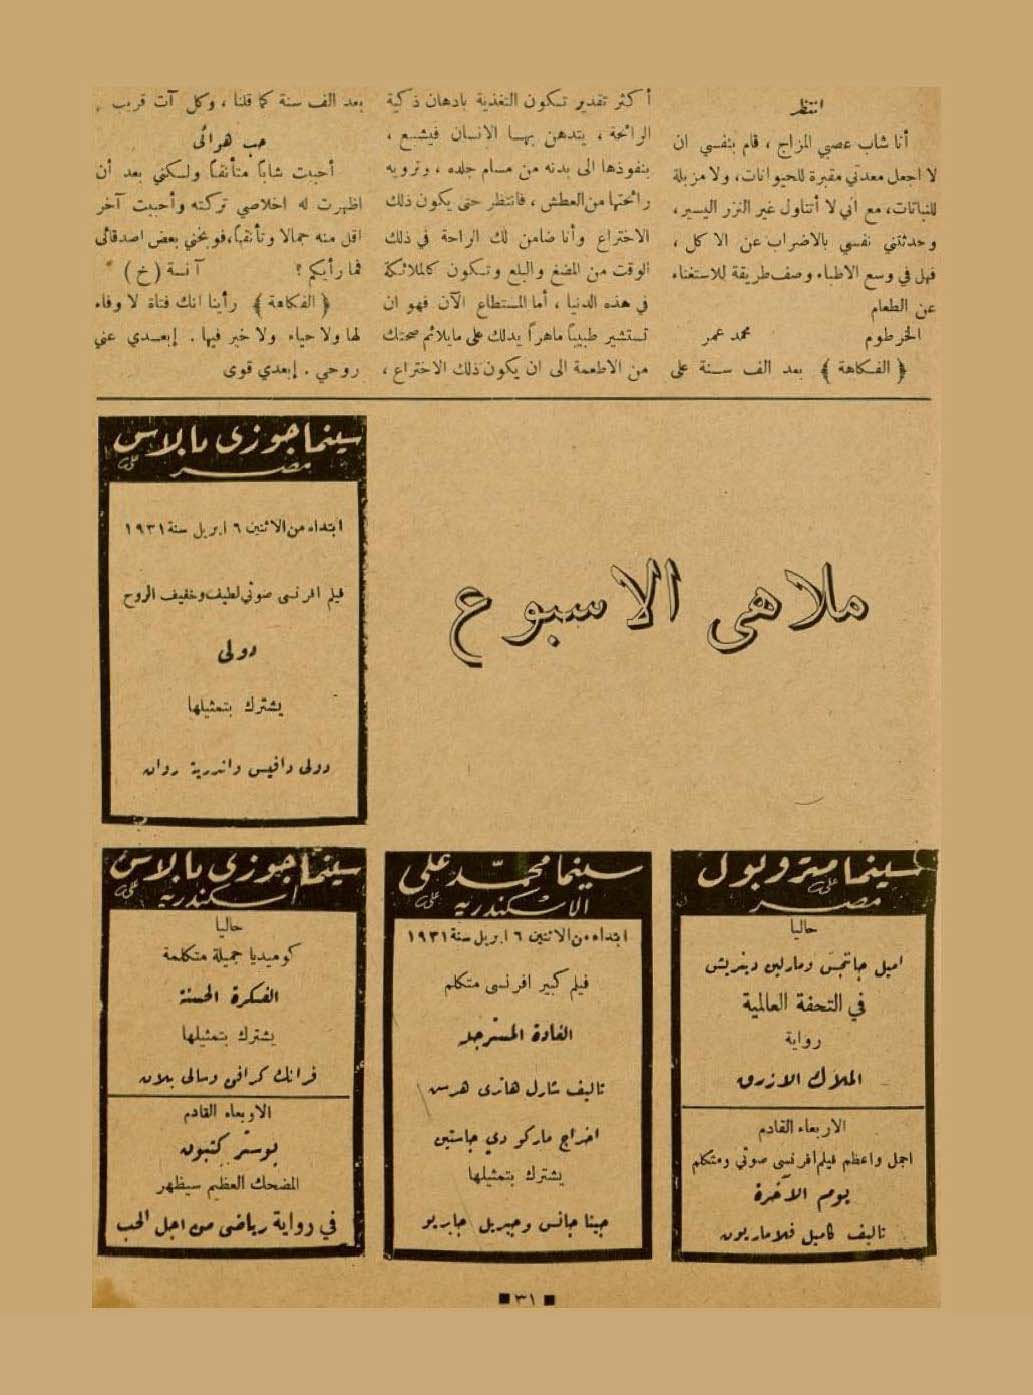 انتظر
أنا شاب عصبي المزاج ، قام بنفسي ان
لا اجعل معدتي مقبرة للحيوانات، ولا مزبلة
للنباتات، مع اني لا أتناول غير النزر اليسير،
وحدثتني نفسي بالاضراب عن الاكل ،
فهل في وسع الاطباء وصف طريقة للاستغناء
عن الطعام
الخرطوم محمد عمر
﴿ الفكاهة ﴾ بعد الف سنة على
أكثر تقدير تكون التغذية بادهان ذكية
الرائحة ، يتدهن بها الانسان فيشبع ،
بنفوذها الى بدنه من مسام جلده ، وترويه
رائحتها من العطش ، فانتظر حتى يكون ذلك
الاختراع وأنا ضامن لك الراحة في ذلك
الوقت من المضغ والبلع وتكون كالملائكة
في هذه الدنيا ، أما المستطاع الآن فهو ان
تستشير طبيباً ماهراً يدلك على مايلائم صحتك
من الاطعمة الى ان يكون ذلك الاختراع ،
بعد الف سنة كما قلنا ، وكل آت قريب .
حب هوائى
أحببت شاباً متأنقاً ولكني بعد أن
اظهرت له اخلاصي تركته وأحببت آخر
اقل منه جمالا وتأنقاً،فوبخني بعض اصدقائى
فما رأيكم ؟ آنسة (خ)
﴿ الفكاهة ﴾ رأينا انك فتاة لا وفاء
لها ولا حياء ولا خير فيها . إبعدي عني
روحي . إبعدي قوى
سينما جوزى بالاس
مصر
ابتداء من الاثنين ٦ ابريل سنة ١٩٣١
فيلم افرنسى صوتي لطيف وخفيف الروح
دولى
يشترك بتمثيلها
دولى دافيس واندرية روان
ملاهى الاسبوع
سينما متروبول
مصر
حاليا
اميل جاننجس ومارلين ديتريش
في التحفة العالمية
رواية
الملاك الازرق
الاربعاء القادم
اجمل واعظم فيلم افرنسى صوتي ومتكلم
يوم الآخرة
تاليف كاميل فلاماريون
سينما محمد على
الاسكندرية
ابتداء من الاثنين ٦ ابريل سنة ١٩٣١
فيلم كبير افرنسى متكلم
الغادة المسترجله
تاليف شارل هانرى هرس
اخراج ماركو دي جاستين
يشترك بتمثيلها
جينا جانس وجبريل جابريو
سينما جوزى بالاس
اسكندرية
حاليا
كوميديا جميلة متكلمة
الفكرة الحسنة
يشترك بتمثيلها
فرانك كرافن وسالى بلان
الاربعاء القادم
بوستر كيتون
المضحك العظيم سيظهر
في رواية رياضى من اجل الحب
■ ٣١ ■